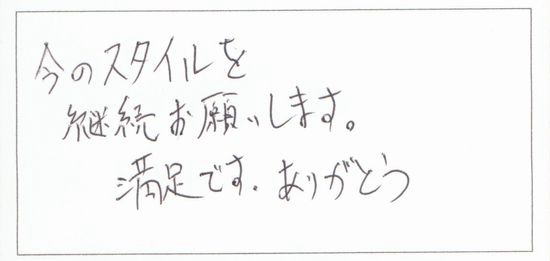 今のスタイルを
継続お願いします。
満足です. ありがとう